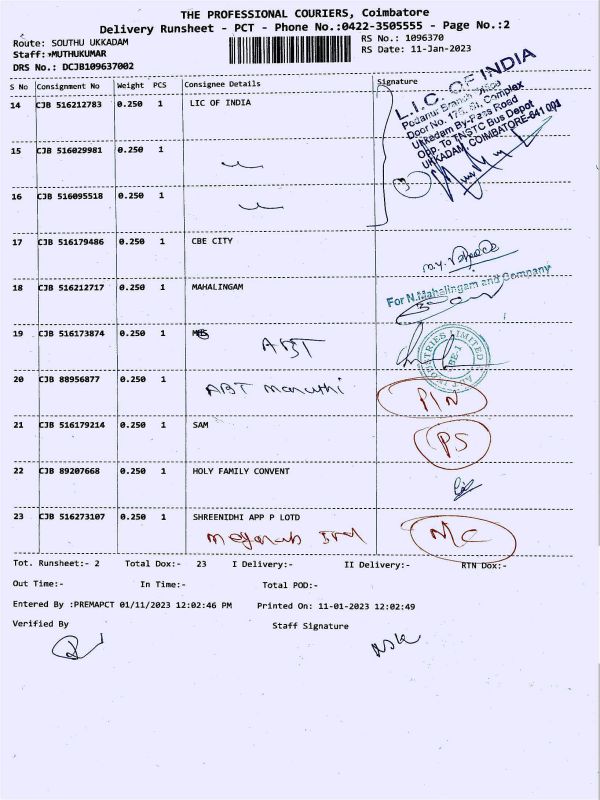 THE PROFESSIONAL COURIERS, Coimbatore
Delivery Runsheet - PCT - Phone No.:0422-3505555 - Page No.:2
Route: SOUTHU UKKADAM
RS No.: 1096370
Staff:*MUTHUKUMAR
RS Date: 11-Jan-2023
DRS No.: DCJB109637002
S No Consignment No Weight PCS Consignee Details Signature
14 CJB 516212783 0.250 1 LIC OF INDIA
L.I.C. OF INDIA
Podanur Branch Office
Door No. 175, St. Complex
Ukkadam By-Pass Road
Opp. To TNSTC Bus Depot
UKKADAM, COIMBATORE-641 001
15 CJB 516029981 0.250 1
16 CJB 516095518 0.250 1
3
17 CJB 516179486 0.250 1 CBE CITY
18 CJB 516212717 0.250 1 MAHALINGAM
For N.Mahalingam and Company
19 CJB 516173874 0.250 1
ABT
20 CJB 88956877 0.250 1 ABT Maruthi PIN
21 CJB 516179214 0.250 1 SAM PS
22 CJB 89207668 0.250 1 HOLY FAMILY CONVENT
23 CJB 516273107 0.250 1 SHREENIDHI APP P LOTD
NC
Tot. Runsheet:- 2 Total Dox:- 23 I Delivery:- II Delivery:- RTN Dox:-
Out Time:- In Time:- Total POD:-
Entered By :PREMAPCT 01/11/2023 12:02:46 PM Printed On: 11-01-2023 12:02:49
Verified By Staff Signature